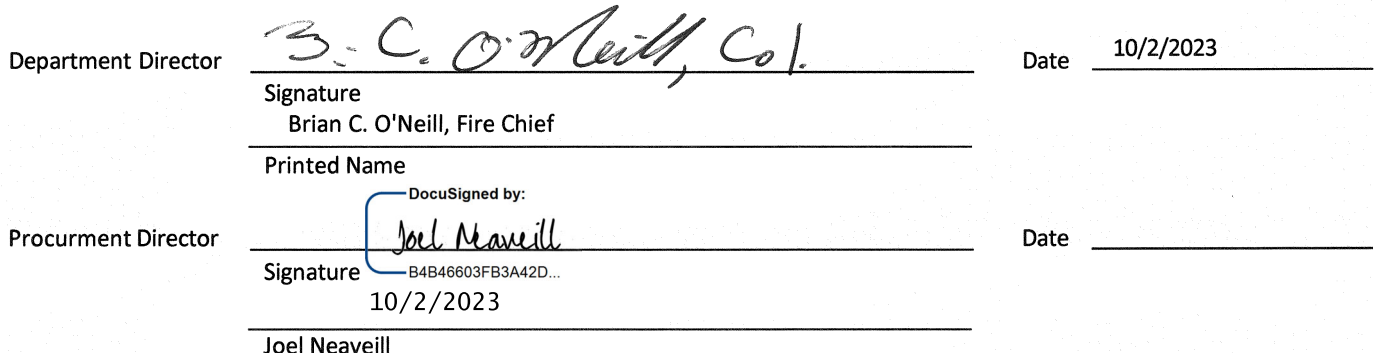 Department Director B. C. O'Neill, Col. Date 10/2/2023
Signature
Brian C. O'Neill, Fire Chief
Printed Name
DocuSigned by:
Procurment Director Joel Neaveill Date
Signature B4B46603FB3A42D...
10/2/2023
Joel Neaveill